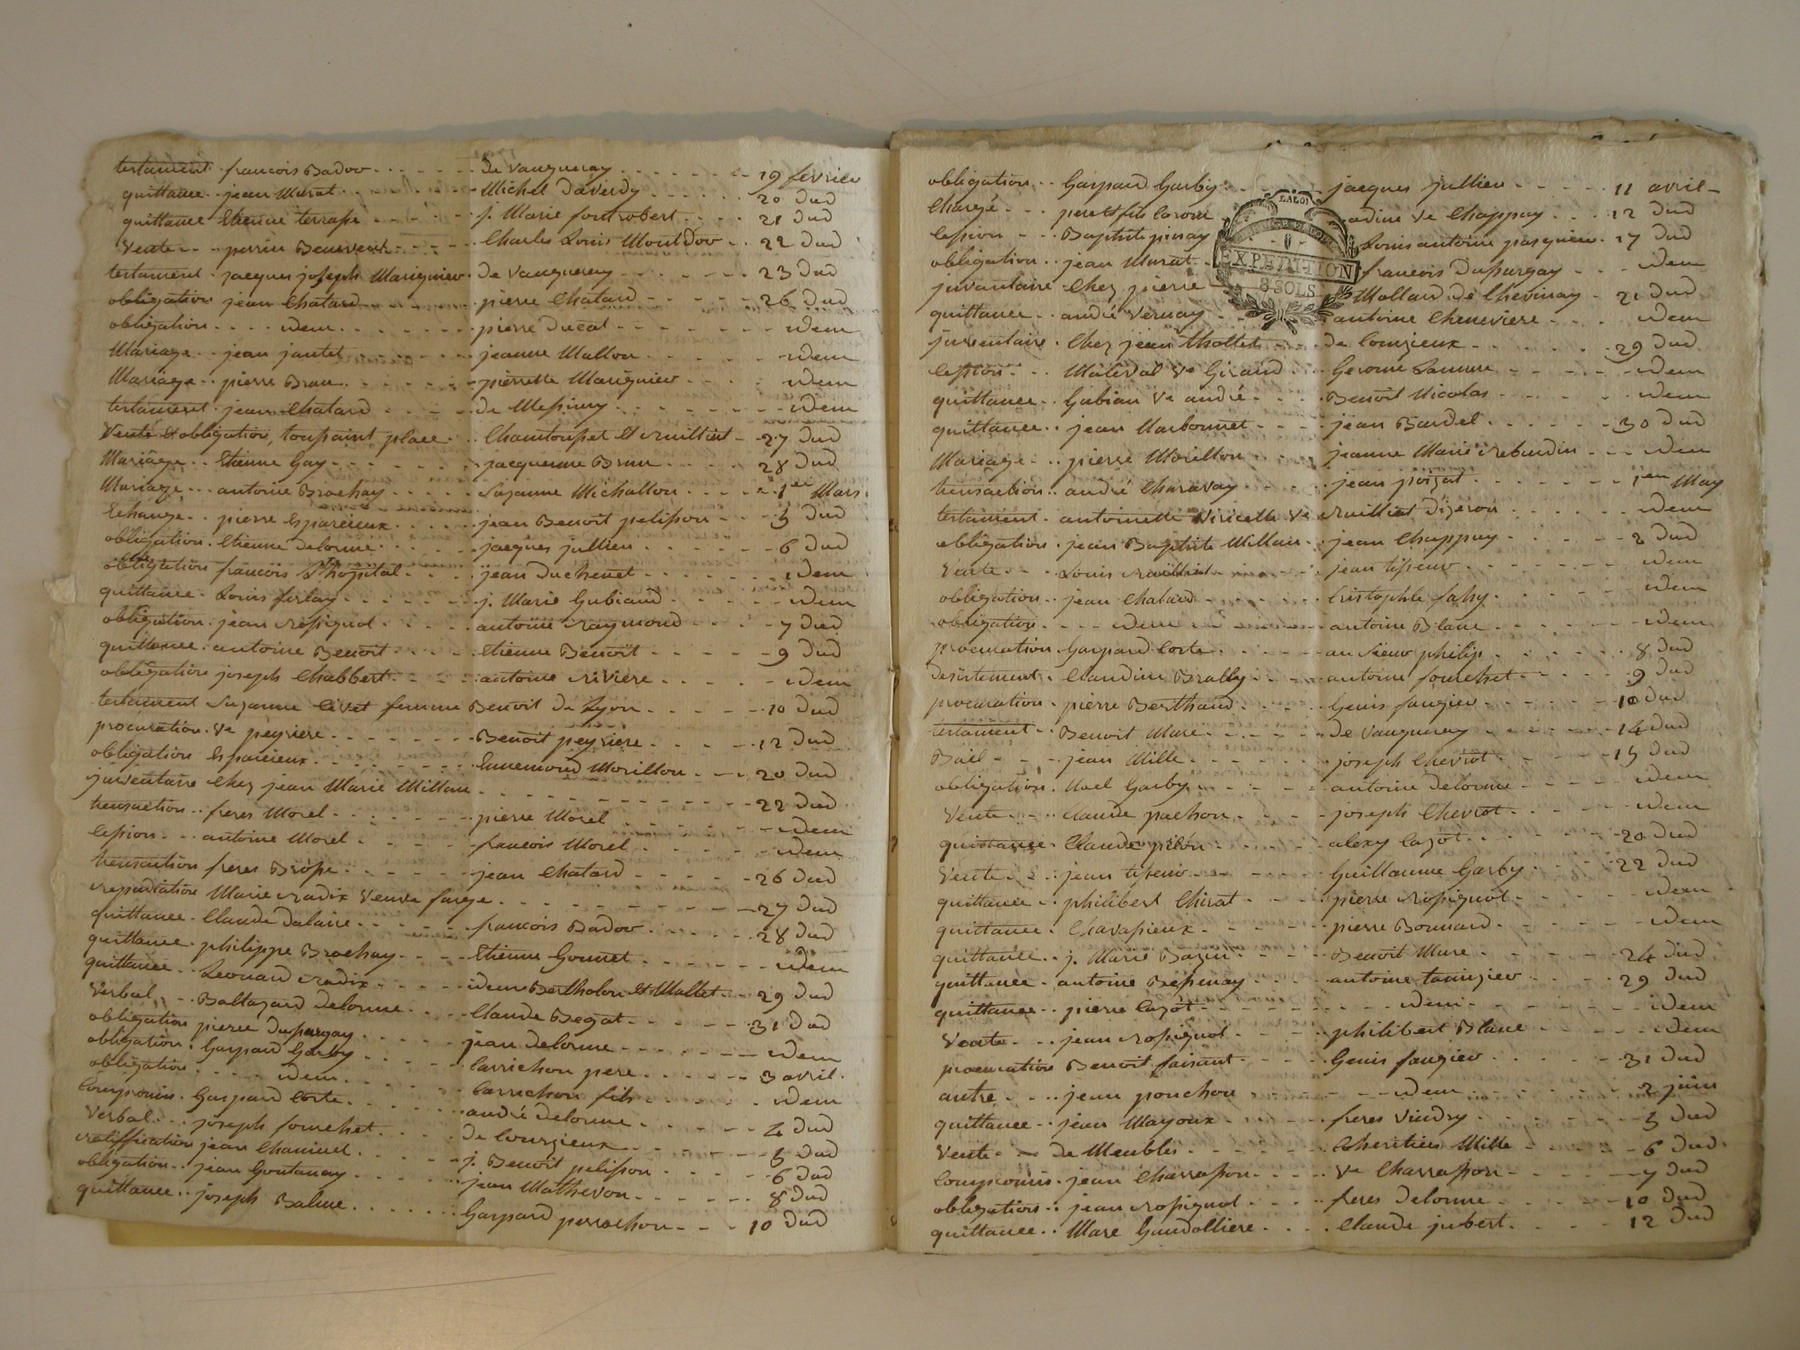 testament . francois Badov - - - - - de Vaugneray - - - - - - - 19 fevrier
quittance . jean Murat - - - - - Michel Daverdy - - - - - 20 dud
quittance Etienne terrasse - - - - - j. Marie fontrobert - - - - 21 dud
Vente - - perrin Benevent - - - - - Charles Louis Montdov - - 22 dud
testament . jacques joseph Marignier . de Vaugneray - - - - - - 23 dud
obligation jean Chatard - - - - - pierre Chatard - - - - - 26 dud
obligation - - - - idem - - - - - pierre ducat - - - - - - - idem
Mariage - - jean jantet - - - - - jeanne Mallon - - - - - - idem
Mariage - - pierre Brun - - - - - pierrette Marignier - - - - idem
testament . jean Chatard - - - - - de Messimy - - - - - - - idem
Vente et obligation, toussaint place - Chantousset et rulliat - 27 dud
Mariage - - Etienne Gay - - - - - jacquemme Brun - - - - 28 dud
Mariage - - - antoine Brochay - - - - - Suzanne Michallon - - - - 1er Mars
Echange - - pierre Esparcieux - - - - jean Benoît pelisson - - - 5 dud
obligation . Etienne delorme - - - - - jacques jullien - - - - - - 6 dud
obligation francois L'hopital - - - - jean duchenet - - - - - - idem
quittance - Louis ferlay - - - - - - j. Marie Gubiand - - - - - idem
obligation . jean rossignol - - - - - antoine raymond - - - - - 7 dud
quittance . antoine Benoit - - - - - Etienne Benoît - - - - - - 9 dud
obligation joseph Chabbert - - - - - antoine riviere - - - - - idem
testament Suzanne Civet femme Benoit de Lyon - - - - - 10 dud
procuration . Ve peyriere - - - - - - Benoît peyriere - - - - - 12 dud
obligation Esparcieux - - - - - - - Ennemond Morillon - - - 20 dud
inventaire Chez jean Marie Millan - - - - - - - - - - - 22 dud
transaction . . freres Morel - - - - - pierre Morel - - - - - - idem
Cession - - - antoine Morel - - - - - francois Morel - - - - - idem
transaction freres Brosse - - - - - - jean Chatard - - - - - 26 dud
repudiation Marie radix Veuve farge - - - - - - - - - - 27 dud
quittance - Claude dalaire - - - - - francois Badov - - - - - 28 dud
quittance . philippe Brochay - - - - Etienne Gonnet - - - - - - idem
quittance . . Leonard radix - - - - - idem Bertholon et Mallet - - 29 dud
Verbal - - Baltazard delorme - - - Claude Begat - - - - - - 31 dud
obligation pierre dupurgay - - - - - jean delorme - - - - - - - idem
obligation . Gaspard Garby - - - - - Carrichon pere - - - - - - 3 avril .
obligation - - - - idem - - - - - - Carrichon fils - - - - - - idem
Compromis . Gaspard Corte - - - - - andré delorme - - - - - - 4 dud
Verbal . . . joseph fourchet - - - - - de Courzieux - - - - - - - 5 dud
ratiffication jean Chaminet - - - - - j. Benoît pelisson - - - - - 6 dud
obligation . . jean Goutanay - - - - - jean Mathevon - - - - - - 8 dud
quittance . . joseph Balme - - - - - - Gaspard perrachon - - - - 10 dud
obligation . . Gaspard Garby - - - - - jacques jullien - - - - - 11 avril -
Charge - - - pere et fils Corom - - - Ve Chappuy - - - 12 dud
Cession - - - Baptiste pinay - - Louis antoine pasquier . 17 dud
obligation . . jean Murat - - francois dupurgay - - - idem
inventaire Chez pierre - Mollard de Chevinay - 21 dud
quittance - - andré Vernay - - - antoine Cheneviere - - - idem
inventaire . Chez jean Thollet - - - de Courzieux - - - - - - - 29 dud
Cession - - Ve Girand - - Gerome Samm - - - - - - idem
quittance - - Gubian Ve andré - - - Benoît Nicolas - - - - - - idem
quittance . . jean Narbonnet - - - - jean Bardel - - - - - - - 30 dud
Mariage - - . pierre Morillon - - - - jeanne Marie rebardin - - - idem
transaction . . andré Charavay - - - - jean poizat - - - - - - - 1er May
testament . antoinette Viricelle Ve rulliat dizeron - - - - - - idem
obligation . jean Baptiste Millan . . jean Chappuy - - - - - - 2 dud
Vente - - - Louis rulliat - - - - - - jean tisseur - - - - - - - idem
obligation . . jean Chatard - - - - - Cristophle fahy - - - - - - idem
obligation - - - - idem - - - - - - antoine Blanc - - - - - - idem
procuration Gaspard Corte - - - - - au sieur philip - - - - - - 8 dud
desistement . Claudine Brally - - - - antoine fourchet - - - - - 9 dud
procuration . pierre Berthaud - - - - Genis faugier - - - - - - 10 dud
testament . . Benoit Mure - - - - - de Vaugneray - - - - - - 14 dud
Bail - - - - jean Mille - - - - - - joseph Chevrot - - - - - - 15 dud
obligation . Noel Garby - - - - - - antoine delorme - - - - - idem
Vente - - - Claude pachon - - - - - joseph Chevrot - - - - - - idem
quittance . Claude pilon - - - - - alexy Cazot - - - - - - - 20 dud
Vente - - - jean tisseur - - - - - - Guillaume Garby - - - - - 22 dud
quittance . . philibert Chirat - - - - pierre rossignol - - - - - - idem
quittance . Chavassieux - - - - - - pierre Bonnard - - - - - - idem
quittance . . j. Marie Bazin - - - - - Benoit Mure - - - - - - - 24 dud
quittance . antoine Bessenay - - - - antoine tamizier - - - - - 29 dud
quittance . . pierre Cazot - - - - - - - - - - idem - - - - - - - idem
Vente - - . . jean rossignol - - - - - philibert Blanc - - - - - - idem
procuration Benoit faisant - - - - - Genis faugier - - - - - - 31 dud
autre - - . . jean ponchon - - - - - - - - idem - - - - - - - 2 juin
quittance . . jean Mayoux - - - - - - freres Vindry - - - - - - 5 dud
Vente - - - de Meubles - - - - - - - Cheritiers Mille - - - - - - 6 dud
Compromis . jean Charrasson - - - - Ve Charrasson - - - - - - 7 dud
obligation . . jean rossignol - - - - - freres delorme - - - - - - 10 dud
quittance . . Marc Gandolliere - - - - Claude jubert - - - - - 12 dud
EXPEDITION
8 SOLS
LA LOI